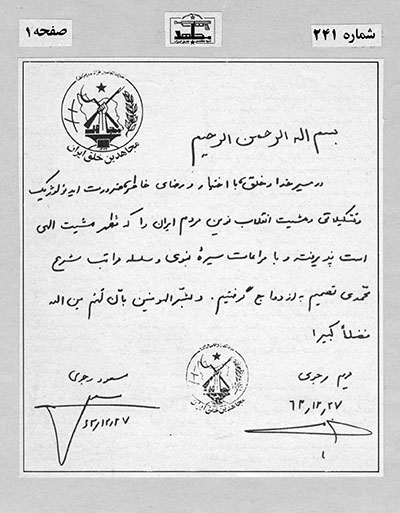 شماره ۲۴۱
مجاهد
صفحه ۱
مجاهدین خلق ایران
بسم اله الرحمن الرحیم
در مسیر خدا و خلق، با اختیار و رضای خاطر، ضرورت ایدئولوژیک
و تشکیلاتی و مشیت انقلاب نوین مردم ایران را که مظهر مشیت الهی
است پذیرفته و با مراعات سیرهٔ نبوی و سلسله مراتب شرع
محمدی تصمیم به ازدواج گرفتیم. و بشر المومنین بان لهم من اله
فضلاً کبیرا
مریم رجوی
۶۳٫۱۲٫۲۷
مسعود رجوی
۶۳٫۱۲٫۲۷
مجاهدین خلق ایران